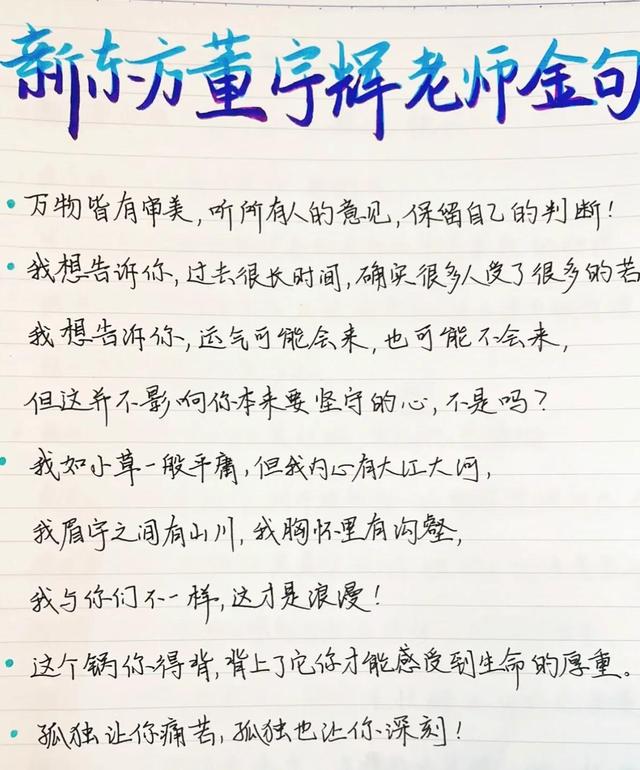 新东方董宇辉老师金句
• 万物皆有审美,听所有人的意见,保留自己的判断!
• 我想告诉你,过去很长时间,确实很多人受了很多的苦
我想告诉你,运气可能会来,也可能不会来,
但这并不影响你本来要坚守的心,不是吗?
• 我如小草一般平庸,但我内心有大江大河,
我眉宇之间有山川,我胸怀里有沟壑,
我与你们不一样,这才是浪漫!
• 这个锅你得背,背上了它你才能感受到生命的厚重。
• 孤独让你痛苦,孤独也让你深刻!